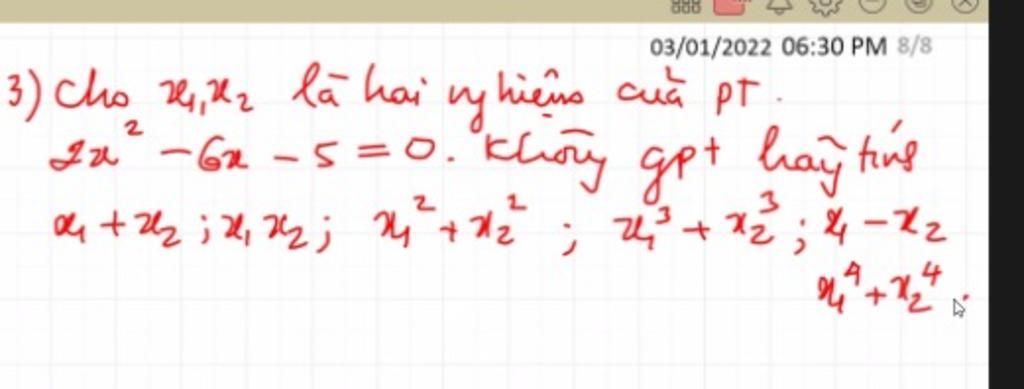 03/01/2022 06:30 PM 8/8
3) Cho x₁, x₂ là hai nghiệm của pT.
2x² - 6x - 5 = 0. Không gpt hãy tính
x₁ + x₂ ; x₁ x₂ ; x₁² + x₂² ; x₁³ + x₂³ ; x₁ - x₂
x₁⁴ + x₂⁴.